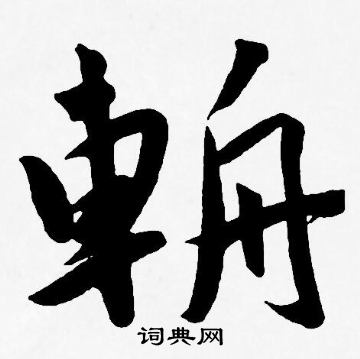 輈
词典网